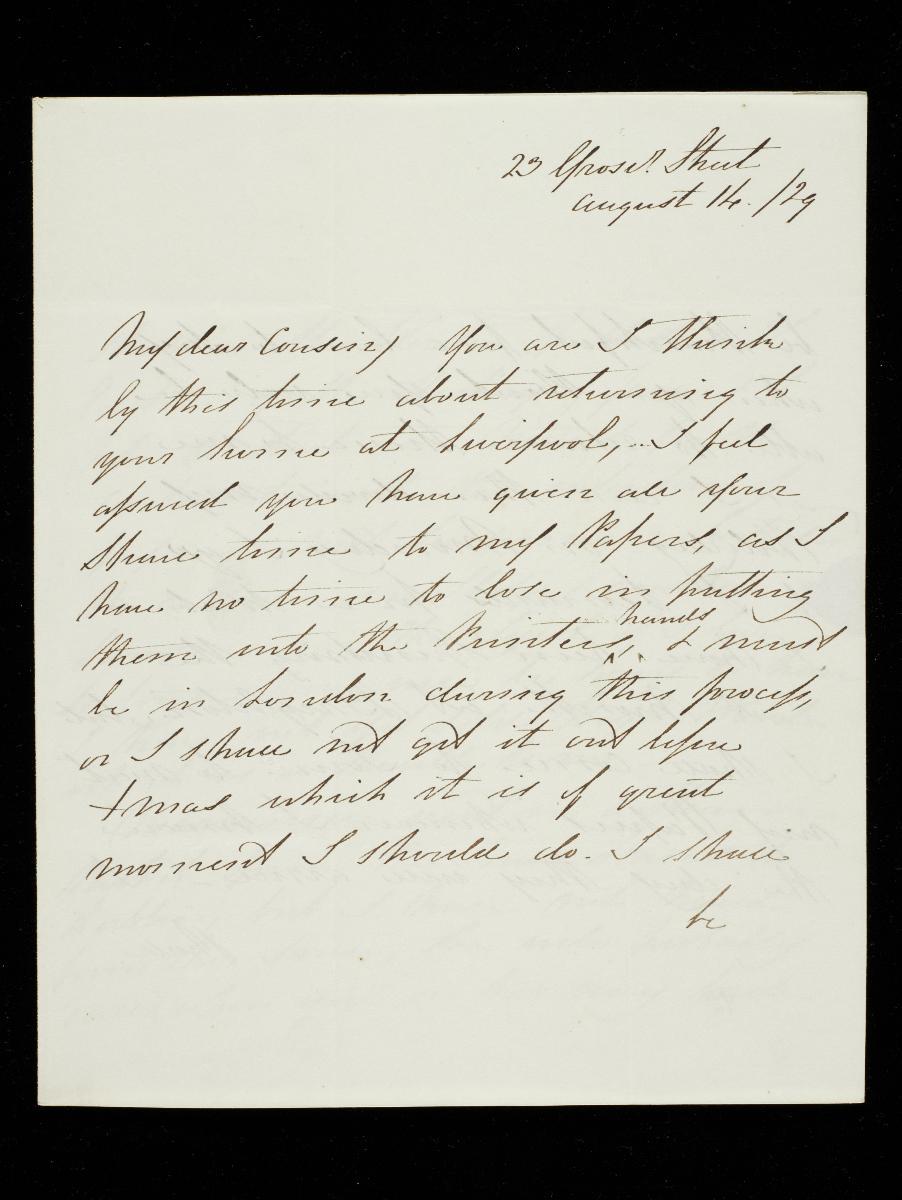 23 Grosr. Street
August 14. /29
My dear Cousin, You are I think
by this time about returning to
your home at Liverpool, I feel
assured you have given all your
spare time to my Papers, as I
have no time to lose in putting
them into the Printers, hands & must
be in London during this process,
or I shall not get it out before
Xmas which it is of great
moment I should do. I shall
be